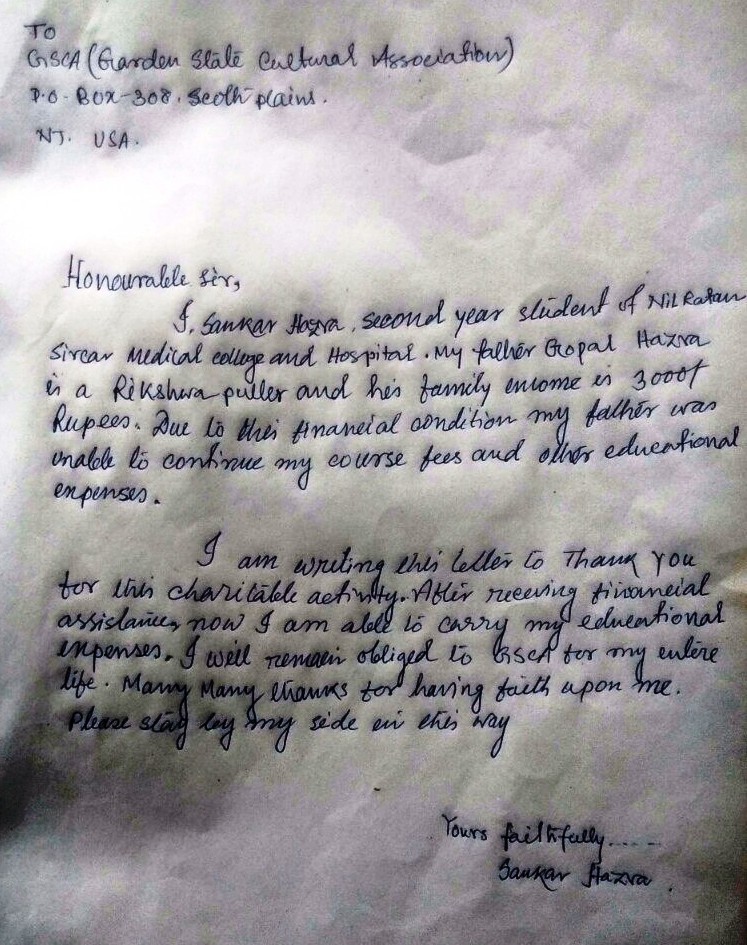 To
GSCA (Garden State Cultural Association)
P.O - BOX-308. Scoth plains.
NJ. USA.
Honourable Sir,
I, Sankar Hazra, second year student of Nil Ratan
Sircar Medical college and Hospital. My father Gopal Hazra
is a Rikshwa puller and his family income is 3000/
Rupees. Due to this financial condition my father was
unable to continue my course fees and other educational
expenses.
I am writing this letter to Thank You
for this charitable activity. After receiving financial
assistance, now I am able to carry my educational
expenses. I will remain obliged to GSCA for my entire
life. Many Many thanks for having faith upon me.
Please stay by my side in this way
Yours faithfully.....
Sankar Hazra.